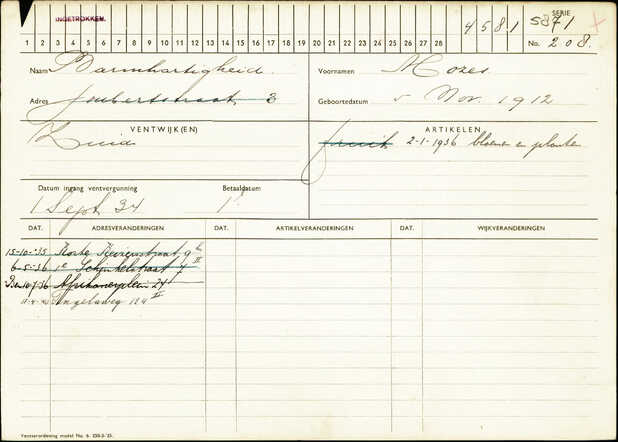 INGETROKKEN.
4581 5871 SERIE
1 2 3 4 5 6 7 8 9 10 11 12 13 14 15 16 17 18 19 20 21 22 23 24 25 26 27 28 No. 208.
Naam Barmhartigheid. Voornamen Mozes
Adres Joubertstraat 3 Geboortedatum 5 Nov. 1912
VENTWIJK(EN) ARTIKELEN
Zuid fruit 2-1-1936 bloemen en planten
Datum ingang ventvergunning Betaaldatum
1 Sept 34 1
DAT. ADRESVERANDERINGEN DAT. ARTIKELVERANDERINGEN DAT. WIJKVERANDERINGEN
15-10-35 Korte Keizerstraat 9
6-5-36 1e Schinkelstraat 4 II
Afrikanerplein 24
Singelweg
Ventverordening model No. 6